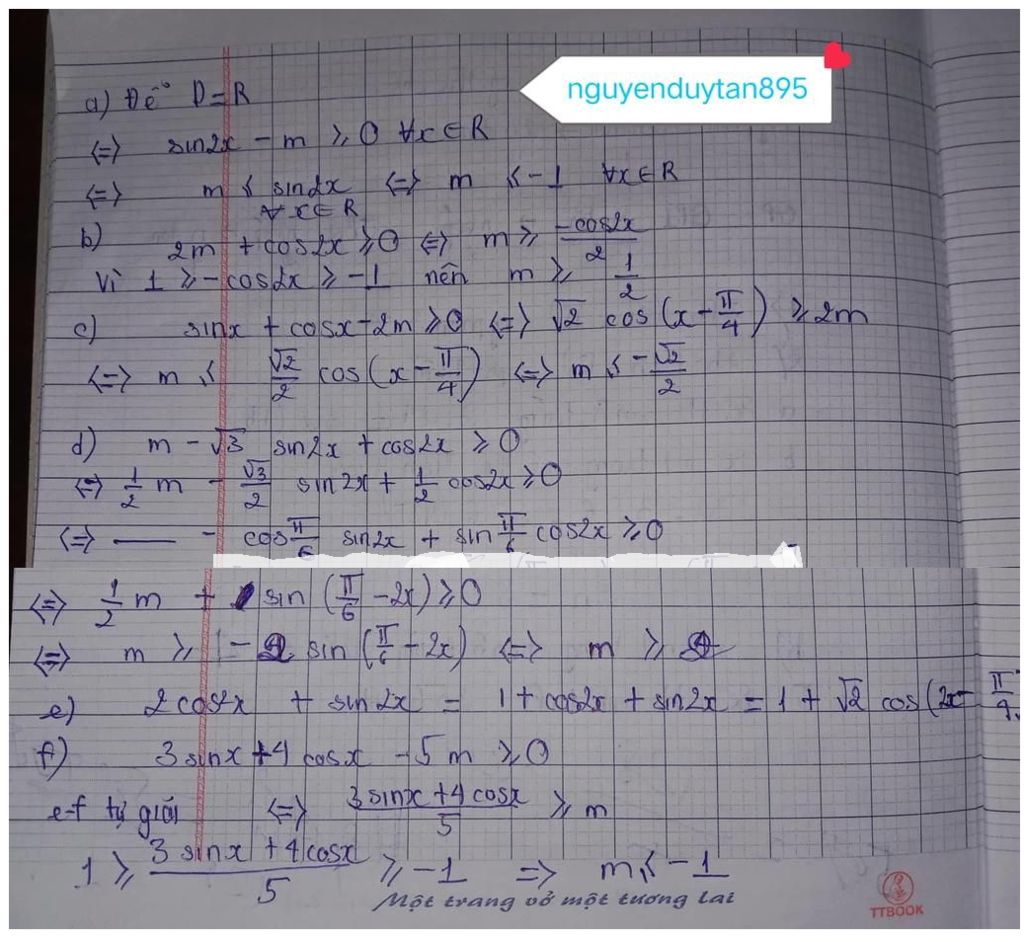 nguyenduytan895
a) Để D=R
<=> sin2x - m ≥ 0 ∀x∈R
<=> m ≤ sin2x <=> m ≤ -1 ∀x∈R
∀x∈R
b) 2m + cos2x ≥ 0 <=> m ≥ -cos2x/2
Vì 1 ≥ -cos2x ≥ -1 nên m ≥ 1/2
c) sinx + cosx - 2m ≥ 0 <=> √2 cos(x - π/4) ≥ 2m
<=> m ≤ √2/2 cos(x - π/4) <=> m ≤ -√2/2
d) m - √3 sin2x + cos2x ≥ 0
<=> 1/2 m - √3/2 sin2x + 1/2 cos2x ≥ 0
<=> — - cos π/6 sin2x + sin π/6 cos2x ≥ 0
<=> 1/2 m + sin(π/6 - 2x) ≥ 0
<=> m ≥ -2 sin(π/6 - 2x) <=> m ≥
e) 2cos²x + sin2x = 1 + cos2x + sin2x = 1 + √2 cos(2x - π/4
f) 3sinx + 4cosx - 5m ≥ 0
e-f tự giải <=> 3sinx + 4cosx/5 ≥ m
1 ≥ 3sinx + 4cosx/5 ≥ -1 => m ≤ -1
Một trang vở một tương lai
TTBOOK